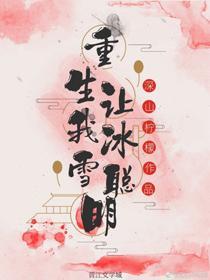 重生我雪
让冰聪明
深山柠檬作品
晋江文学城